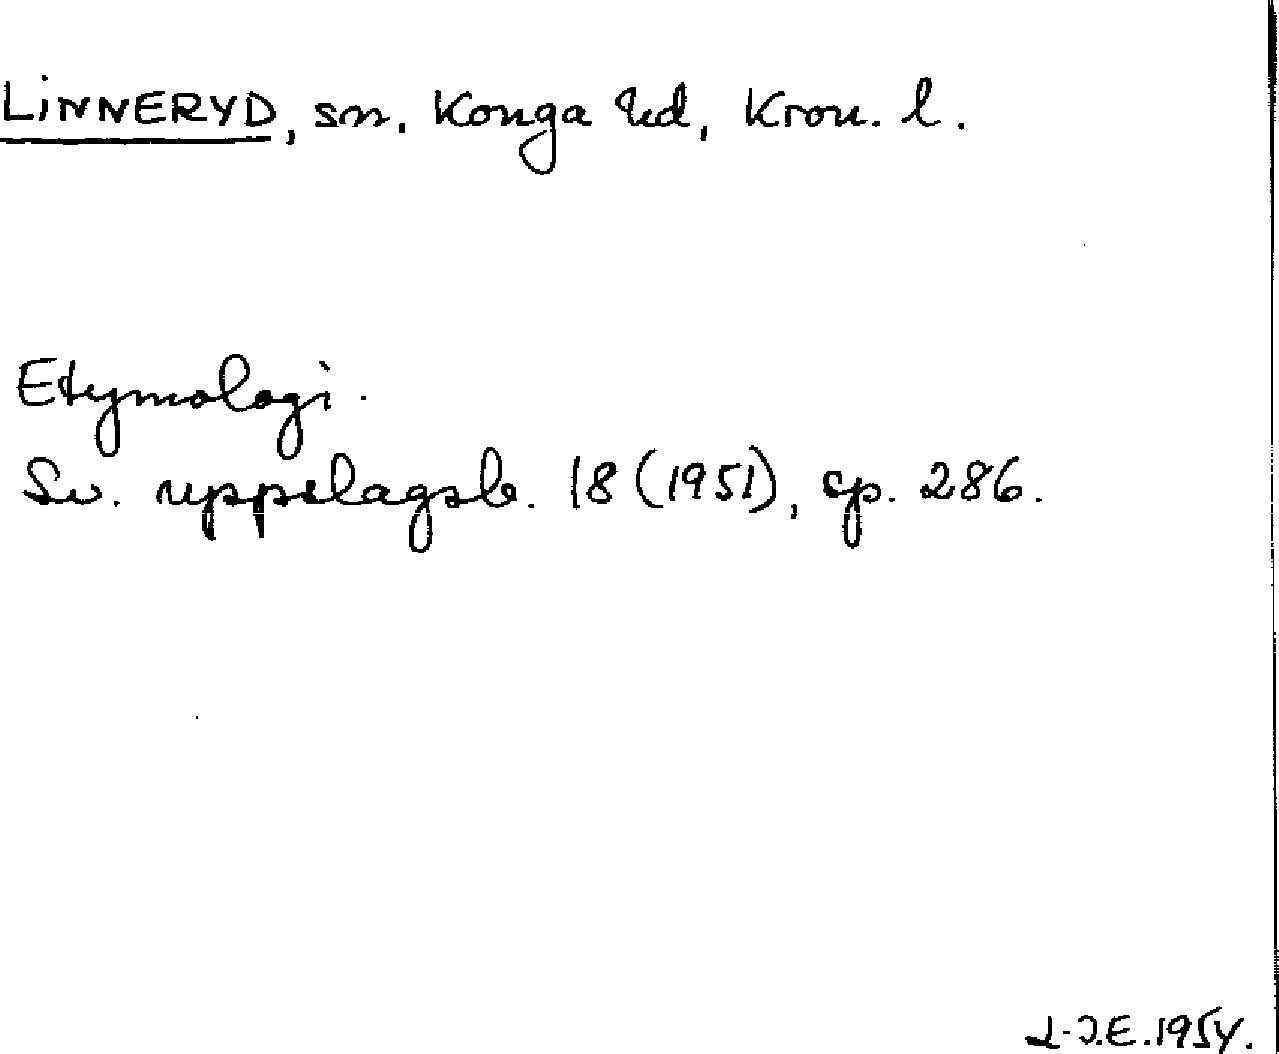 LINNERYD, sn, Konga hd, Kron. l.
Etymologi.
Sv. uppslagsb. 18 (1951), sp. 286.
L-J.E. 1954.